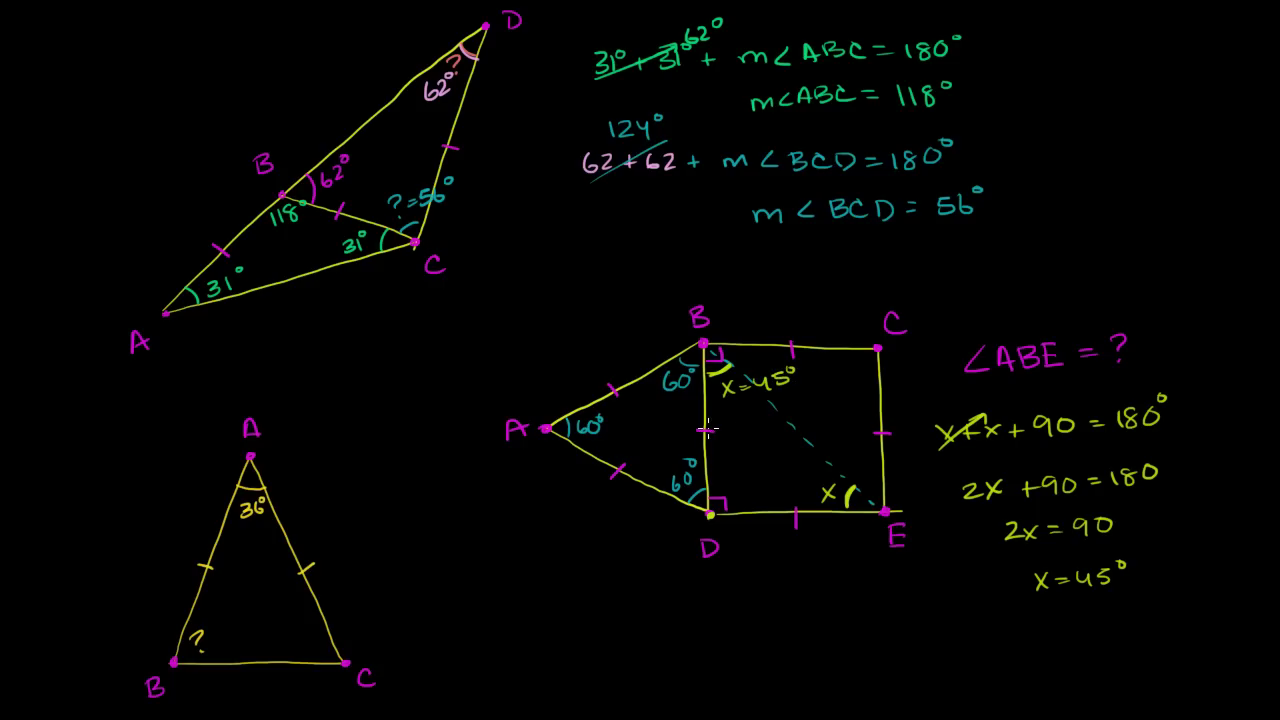 D
?
62°
B
62°
118°
?=56°
31°
C
31°
A
31° + 31° 62° + m∠ABC = 180°
m∠ABC = 118°
124°
62 + 62 + m∠BCD = 180°
m∠BCD = 56°
A
36°
?
B
C
B
C
60°
x=45°
A
60°
60°
x
D
E
∠ABE = ?
x+x+90 = 180°
2x +90 = 180
2x = 90
x=45°